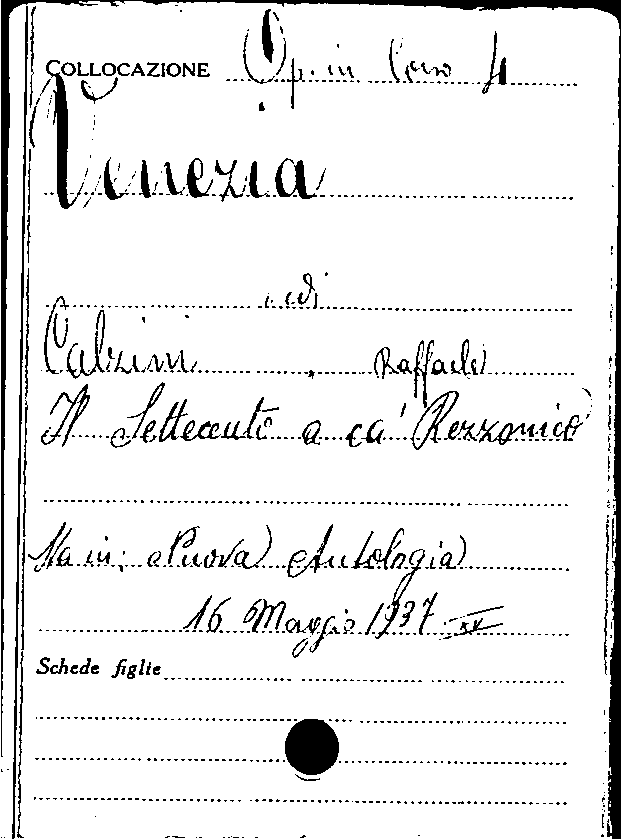 COLLOCAZIONE Op. in Corso 4
Venezia
. edi
Calzini . Raffaele
Il Settecento a ca' Rezzonico
Sta in: Nuova Antologia
16 Maggio 1937 XV
Schede figlie